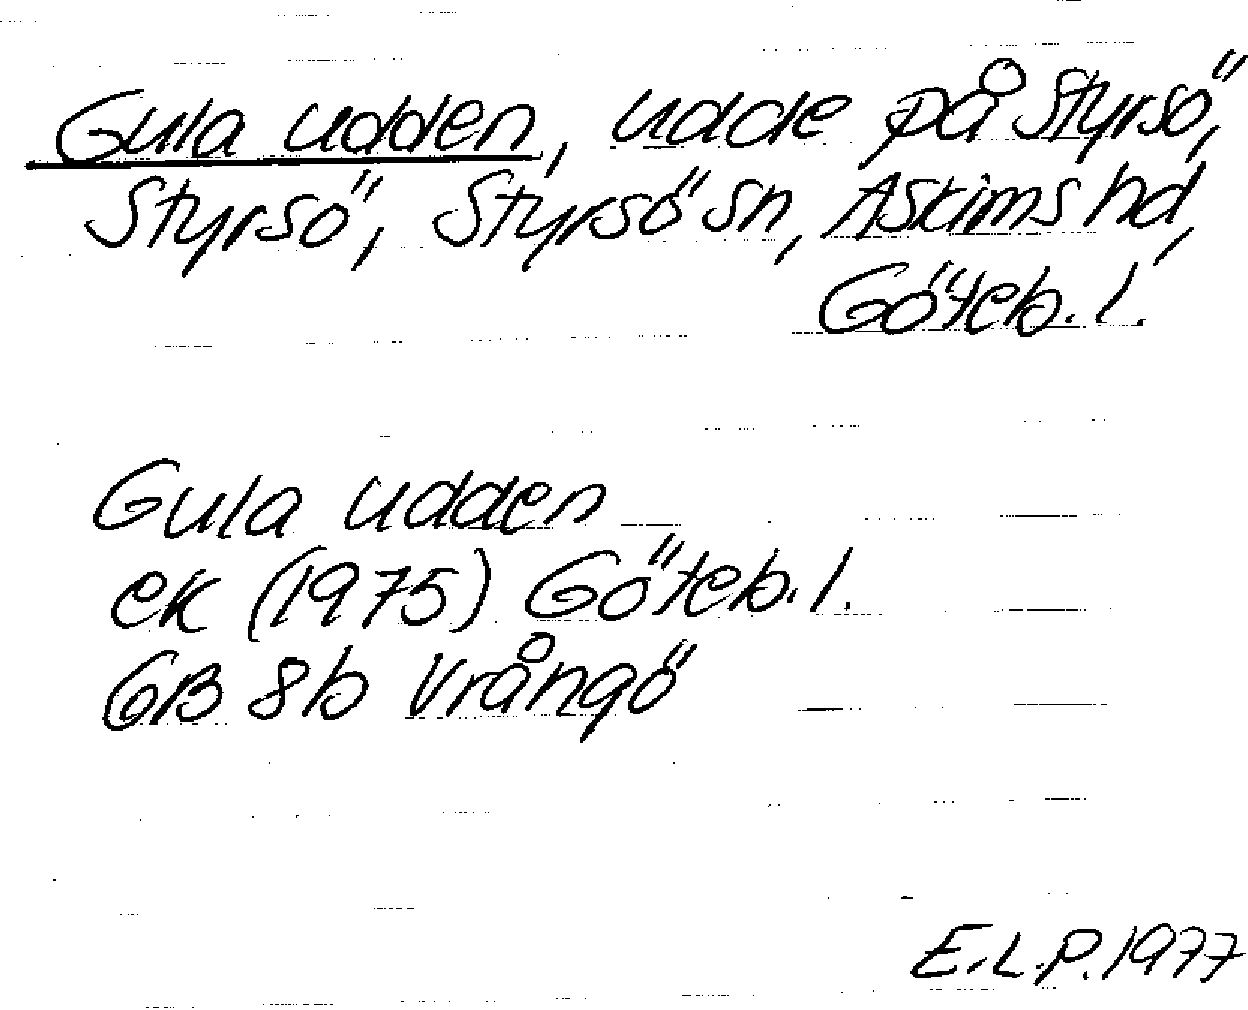 Gula udden, udde på Styrsö,
Styrsö, Styrsö sn, Askims hd,
Göteb. l.
Gula udden
ek (1975) Göteb. l.
GB 8b Vrångö
E.L.P. 1977